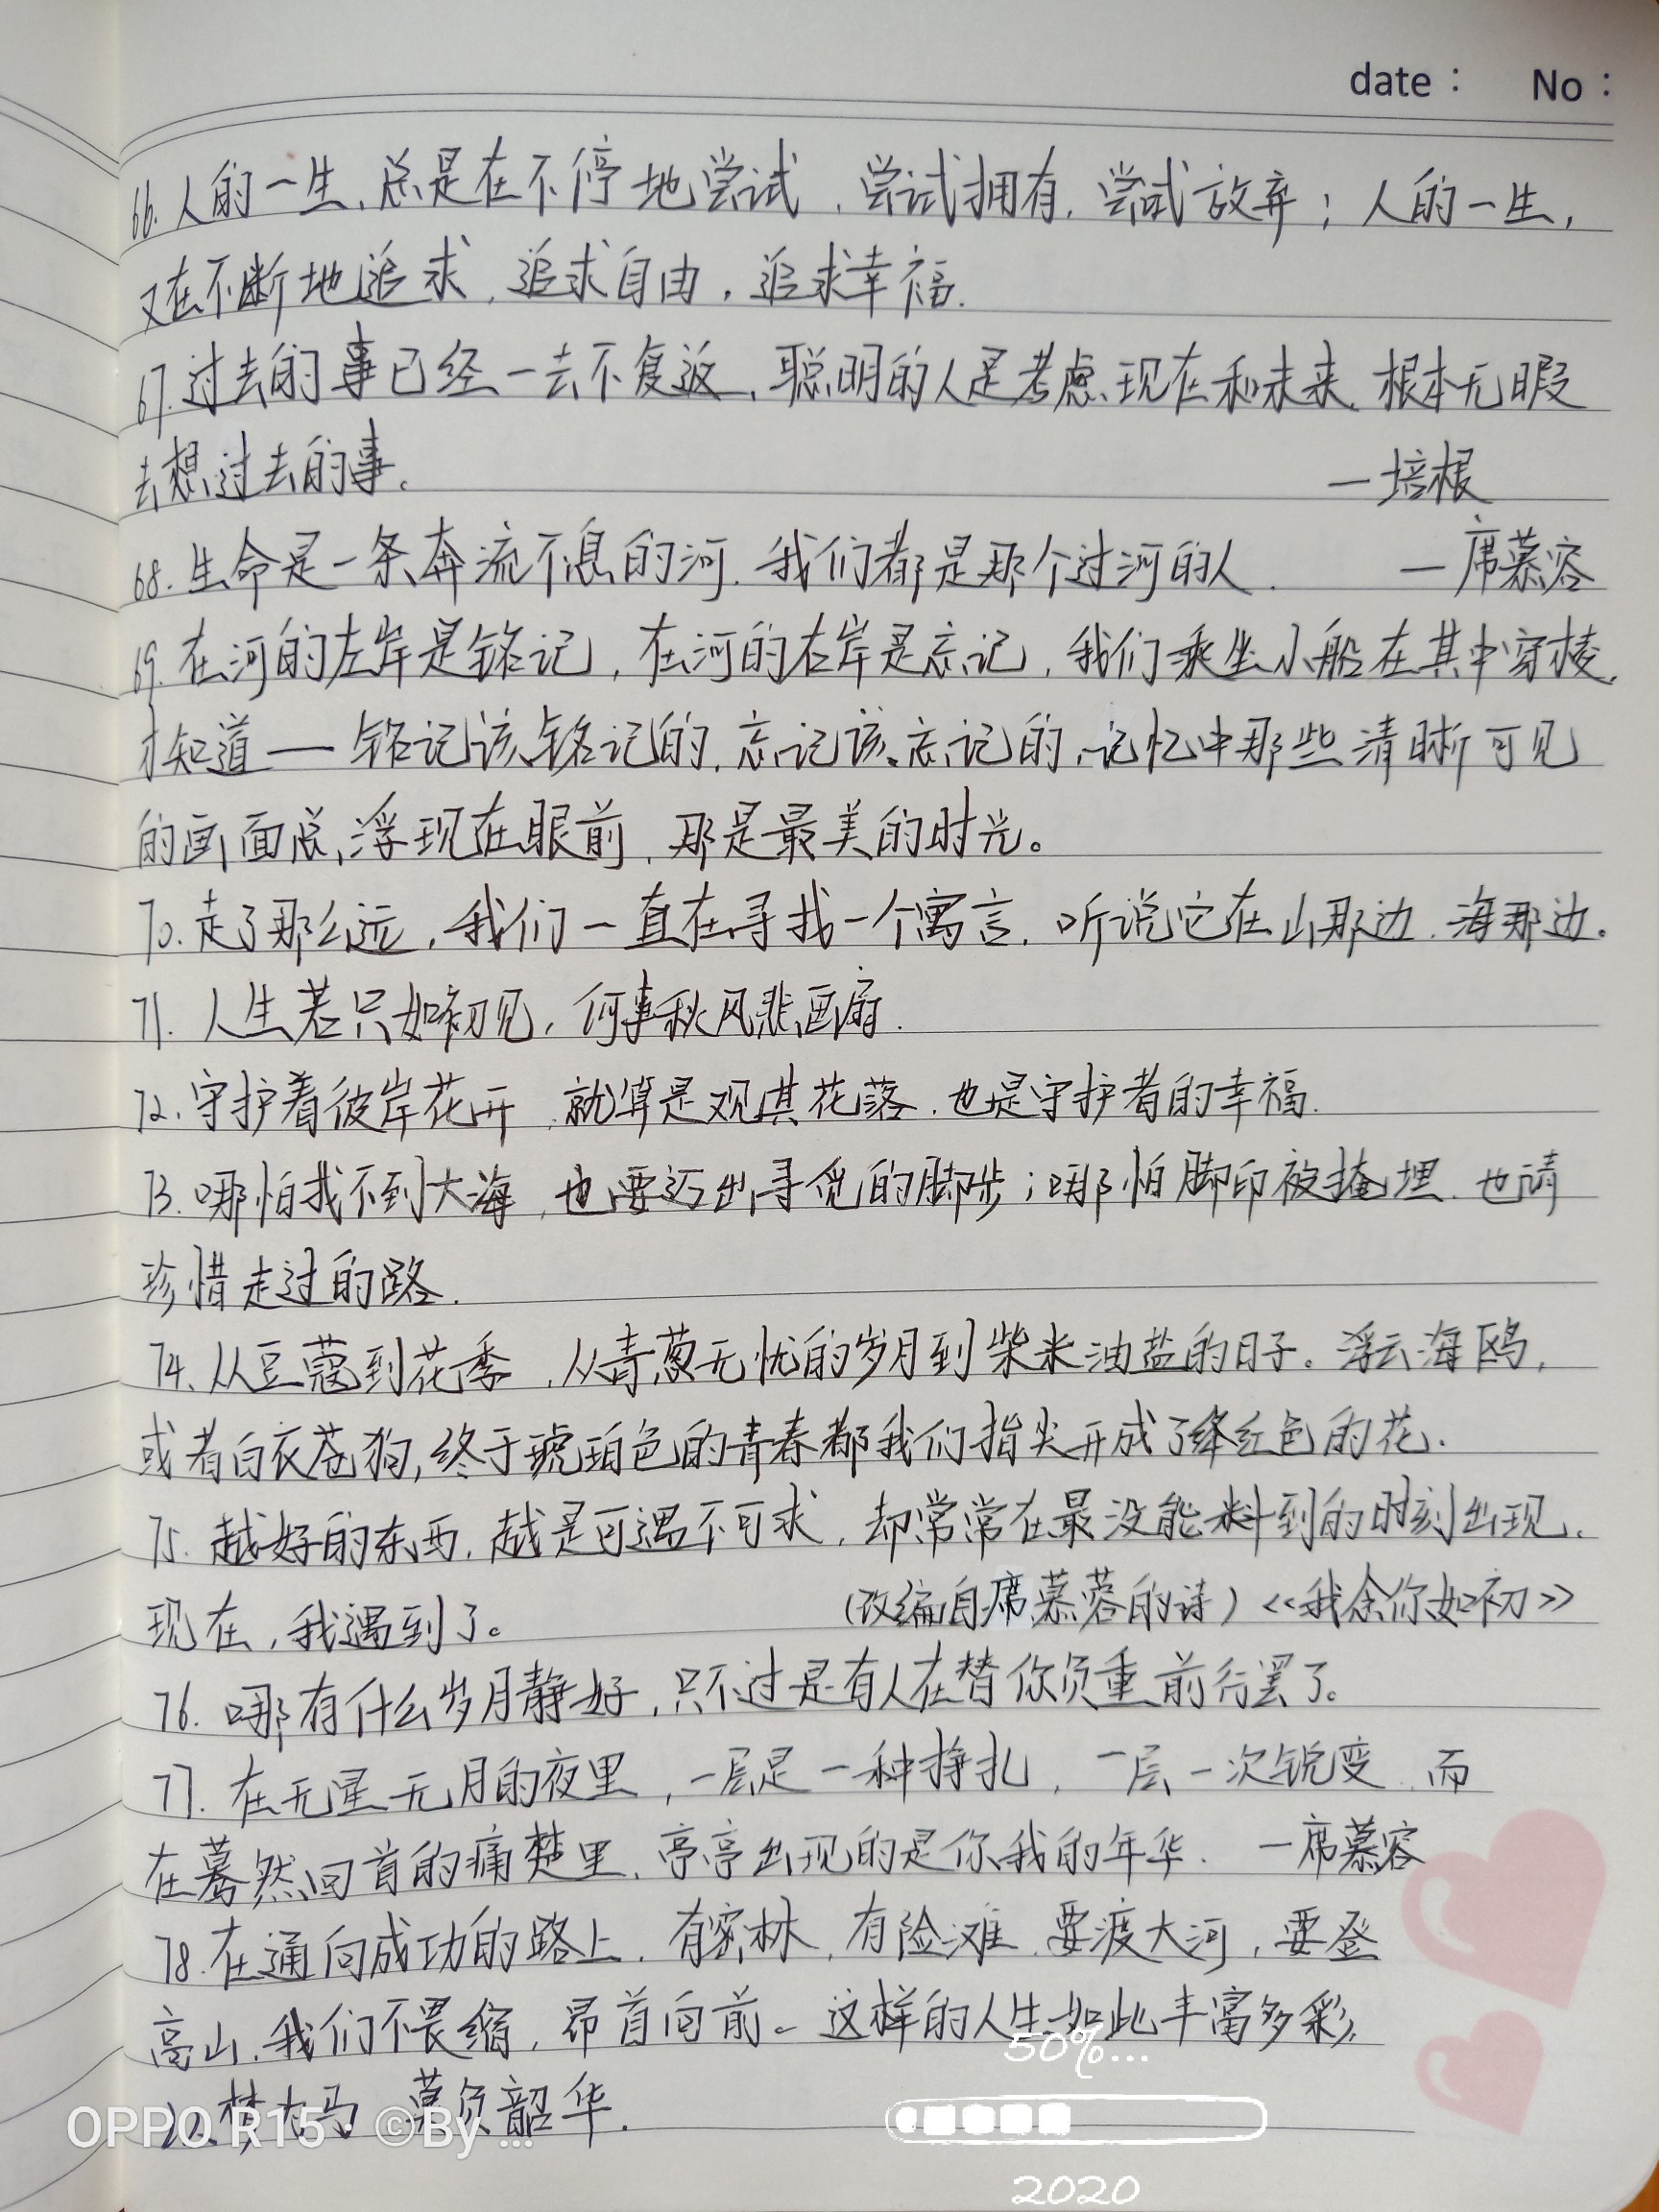 date： No：
66.人的一生,总是在不停地尝试,尝试拥有,尝试放弃;人的一生,
又在不断地追求,追求自由,追求幸福.
67.过去的事已经一去不复返,聪明的人是考虑现在和未来,根本无暇
去想过去的事。
—培根
68.生命是一条奔流不息的河,我们都是那个过河的人. —席慕容
69.在河的左岸是铭记,在河的右岸是忘记,我们乘坐小船在其中穿梭,
才知道——铭记该铭记的,忘记该忘记的,记忆中那些清晰可见
的画面总浮现在眼前,那是最美的时光。
70.走了那么远,我们一直在寻找一个寓言,听说它在山那边,海那边。
71.人生若只如初见,何事秋风悲画扇.
72.守护着彼岸花开,就算是观其花落,也是守护者的幸福.
73.哪怕找不到大海,也要迈出寻觅的脚步;哪怕脚印被掩埋,也请
珍惜走过的路.
74.从豆蔻到花季,从青葱无忧的岁月到柴米油盐的日子。浮云海鸥,
或者白衣苍狗,终于琥珀色的青春都我们指尖开成了绛红色的花.
75.越好的东西,越是可遇不可求,却常常在最没能料到的时刻出现.
现在,我遇到了。 (改编自席慕蓉的诗)《我余你如初》
76.哪有什么岁月静好,只不过是有人在替你负重前行罢了。
77.在无星无月的夜里,一层是一种挣扎,一层一次锐变,而
在蓦然回首的痛楚里,亭亭出现的是你我的年华. —席慕容
78.在通向成功的路上,有密林,有险滩,要渡大河,要登
高山,我们不畏缩,昂首向前。这样的人生如此丰富多彩,
以梦为马 莫负韶华.
50%...
OPPO R15 · ©By ...
2020